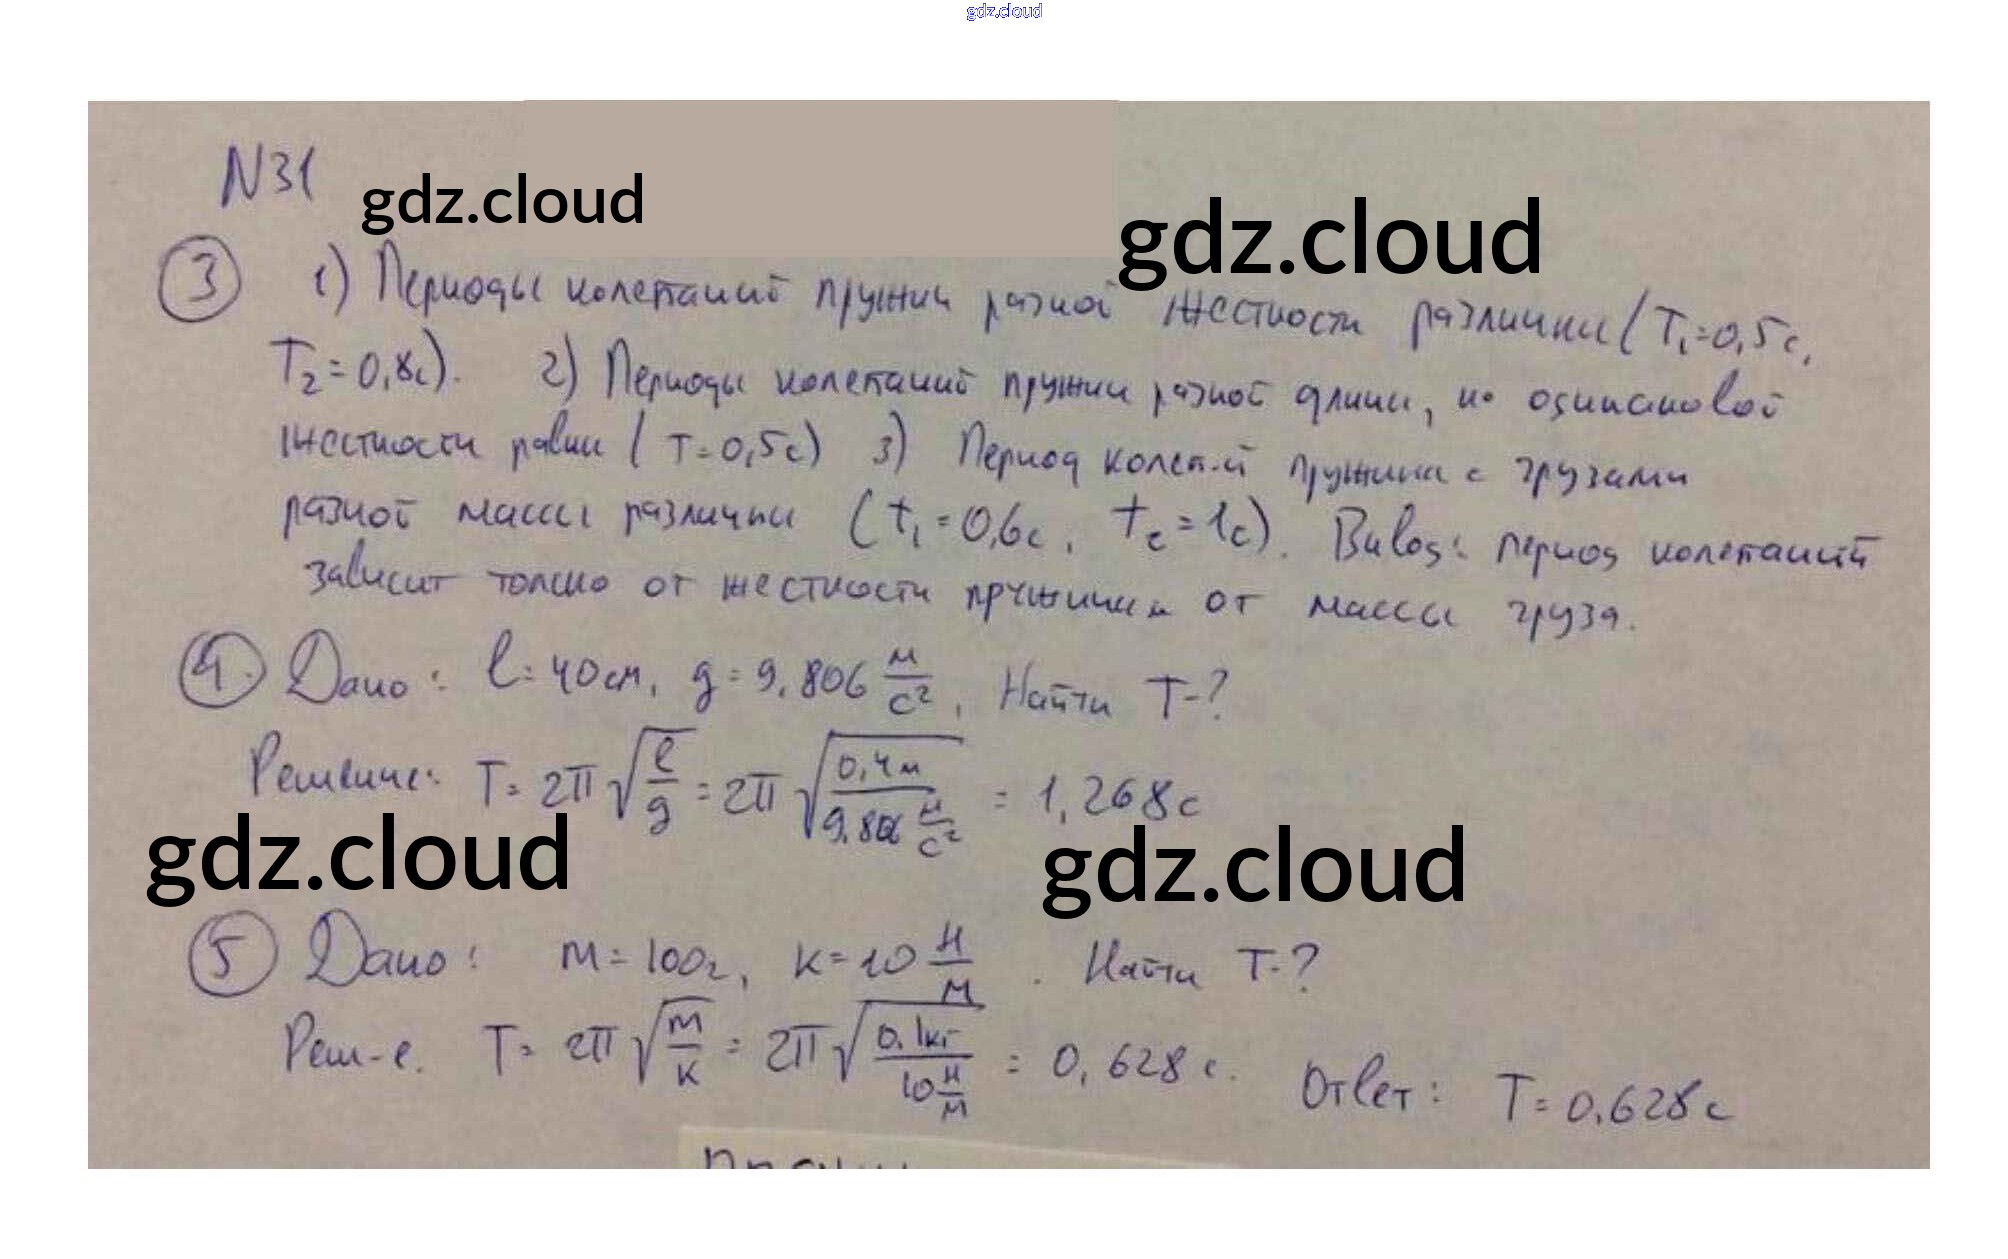 gdz.cloud
N31
gdz.cloud
gdz.cloud
3 1) Периоды колебаний пружин разной жесткости различны (T₁=0,5с,
T₂=0,8с). 2) Периоды колебаний пружин разной длины, но одинаковой
жесткости равны (T=0,5с) 3) Период колеб-й пружины с грузами
разной массы различны (t₁=0,6с, t₂=1с). Вывод: период колебаний
зависит только от жесткости пружины и от массы груза.
4. Дано: l=40см, g=9.806 м/с², Найти T-?
Решение: T=2π√(l/g)=2π√(0,4м/9.806 м/с²) = 1,268с
gdz.cloud
gdz.cloud
5 Дано: m=100г, к=10 Н/м. Найти T-?
Реш-е. T=2π√(m/к) = 2π√(0.1кг/10 Н/м) = 0,628с. Ответ: T=0.628с